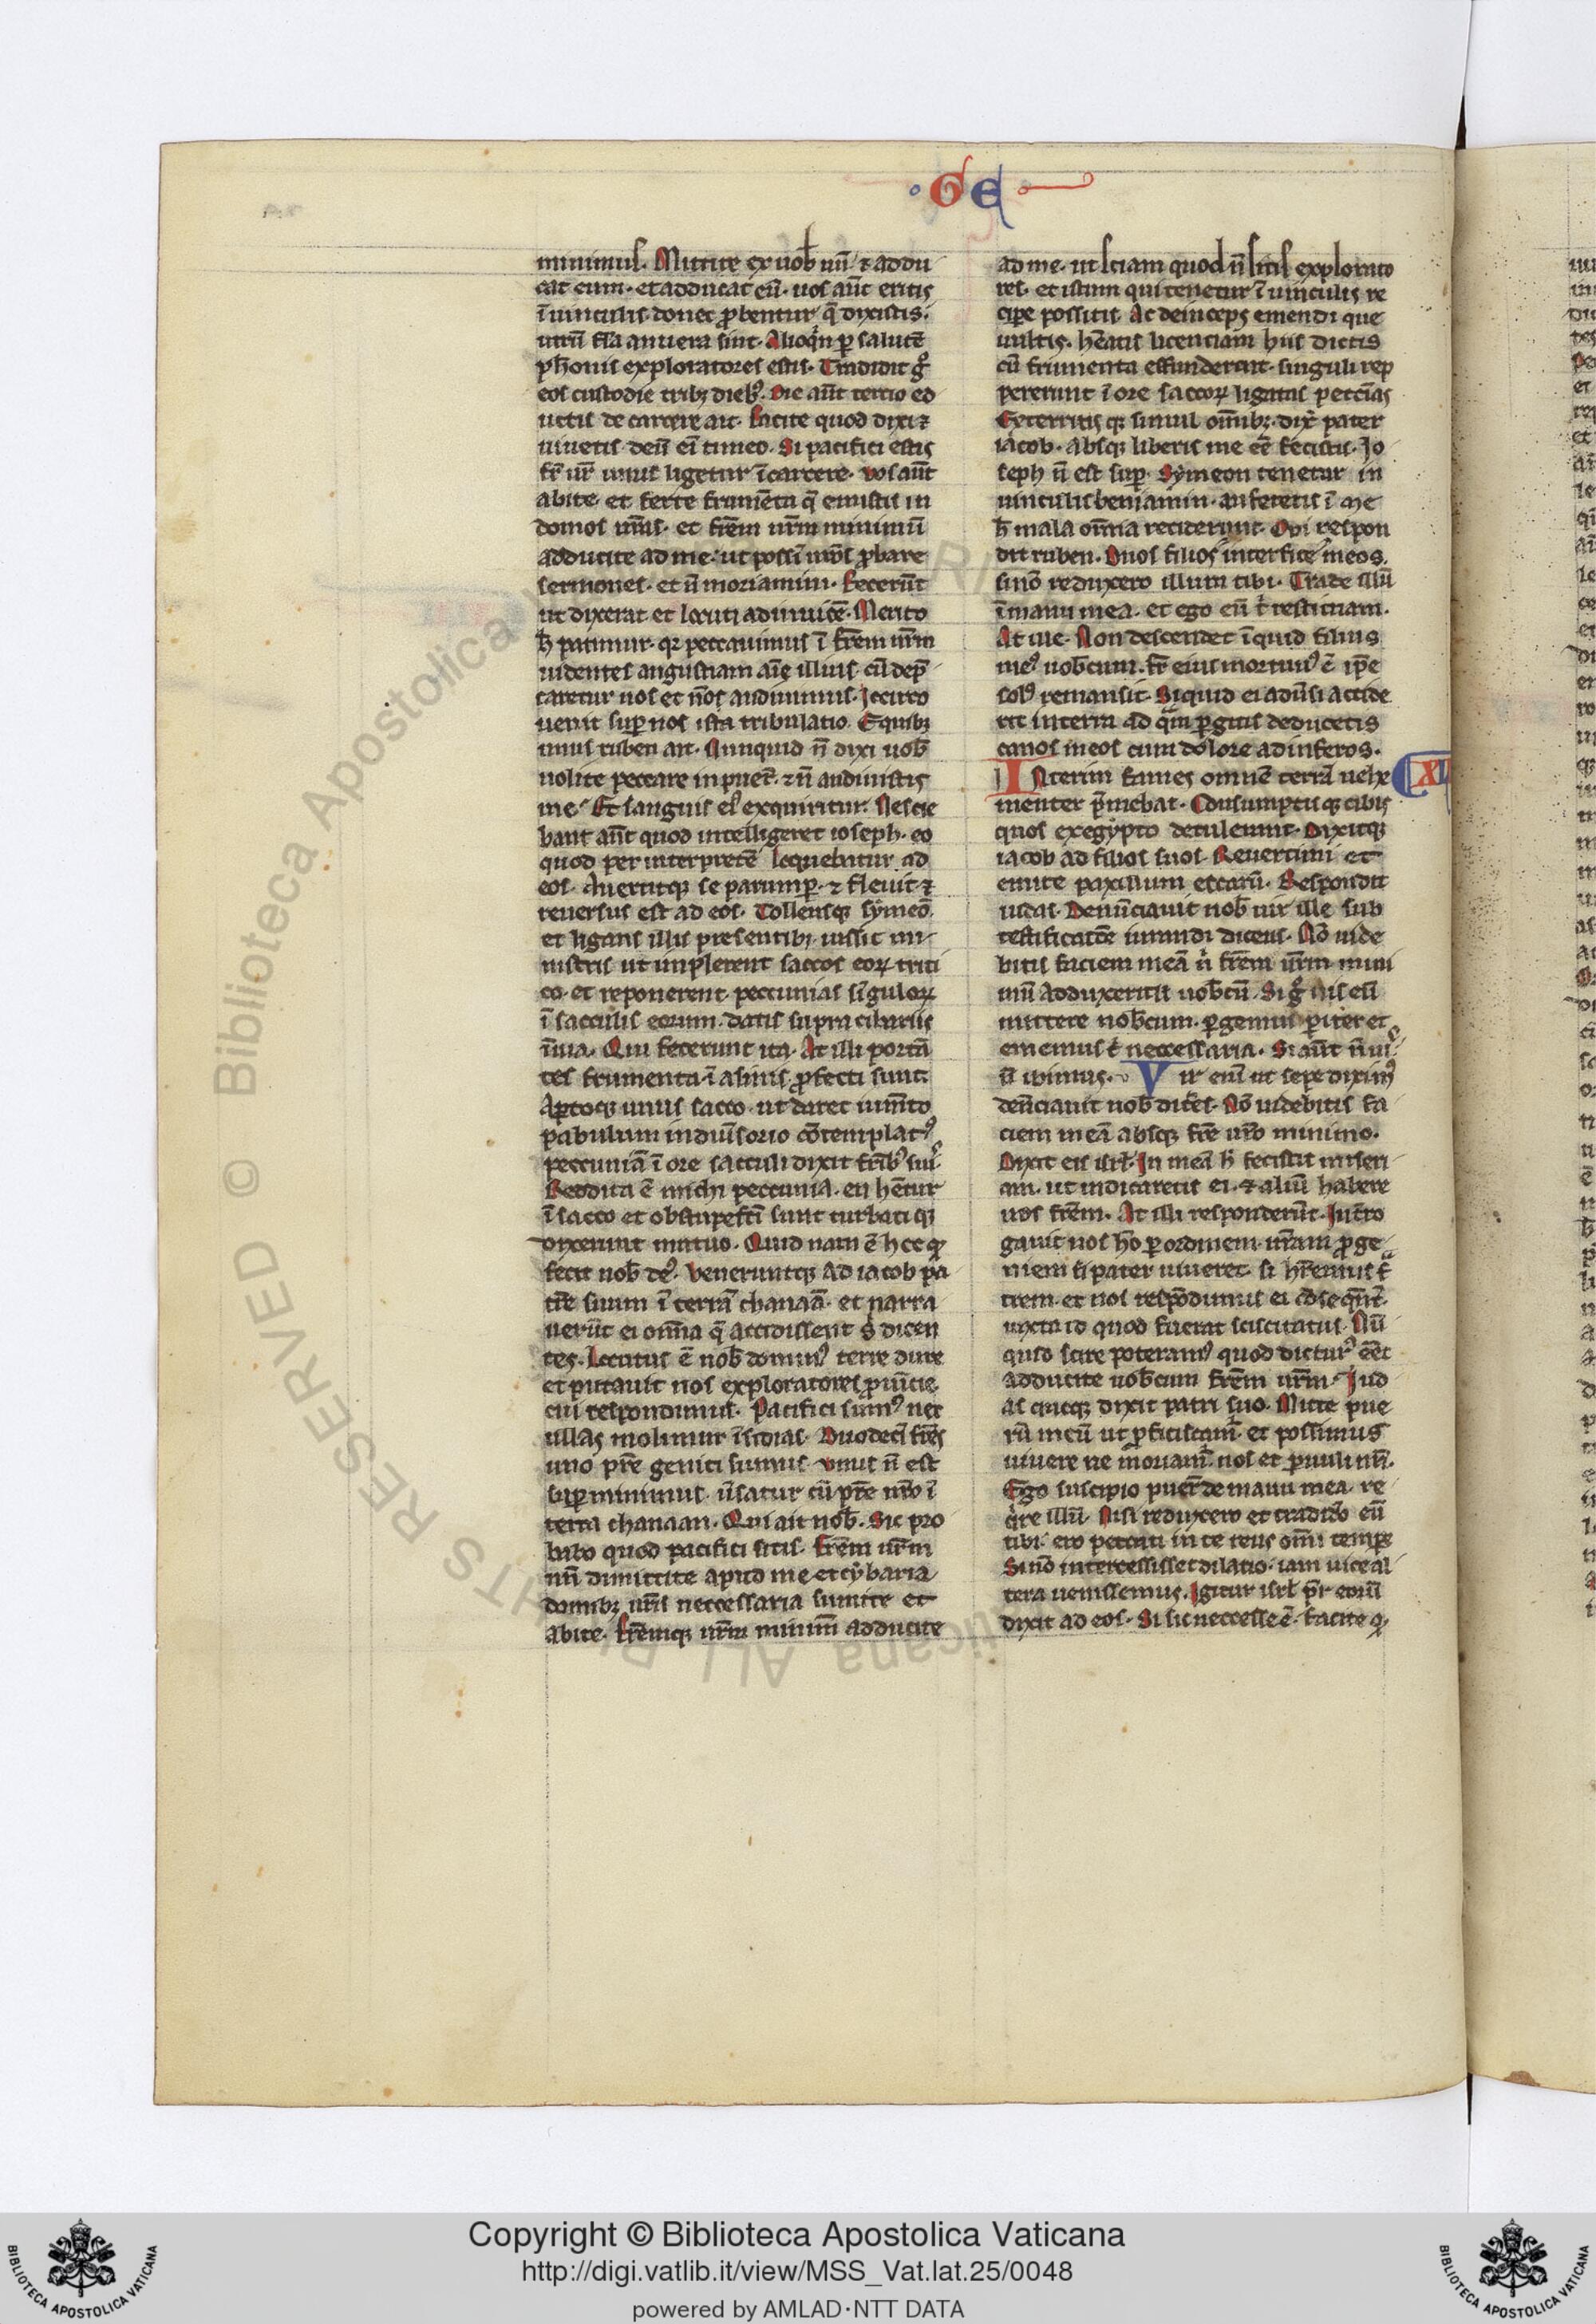 · G E
minimus. Mittite ex uob̄ unū ⁊ addu
cat eum. et adducat eū. uos aūt eritis
ī uinculis donec ꝓbentur q̄ dixistis.
utrū fl̄a an uera sint. Alioq̇n ꝑ salutē
ph̄onis exploratores estis. Tradidit gͦ
eos custodie tribꝫ diebꝰ. Die aūt tertio ed
uctis de carcere ait. Facite quod dixi ⁊
uiuetis. deū eī timeo. Si pacifici estis
fr̄ ur̄ unus ligetur ī carcere. Vos aūt
abite. et ferte frumēta q̄ emistis in
domos ur̄as. et fr̄em ur̄m minimū
adducite ad me. ut possī ur̄os ꝓbare
sermones. et ñ moriamini. Fecerūt
ut dixerat et locuti ad inuicē. Merito
h̄ patimur. qꝛ peccauimus ī fr̄em nr̄m
uidentes angustiam aīe illius. cū dep̄
caretur nos et nōs audiuimus. Iccirco
uenit suꝑ nos ista tribulatio. E quibꝫ
unus ruben ait. Nunquid ñ dixi uob̄
nolite peccare in puer̄. ⁊ ñ audiuistis
me. Et sanguis eiꝰ exquiritur. Nescie
bant aūt quod intelligeret ioseph. eo
quod per interpretē loquebatur ad
eos. Auertitqꝫ se parumꝑ. ⁊ fleuit. ⁊
reuersus est ad eos. Tollensqꝫ symeō.
et ligans illis presentibꝫ. iussit mi
nistris ut implerent saccos eoꝝ triti
co. et reponerent peccunias sīguloꝝ
ī sacculis eorum. datis supra cibariis
ī uia. Qui fecerunt ita. At illi portā
tes frumenta. ī asinis. ꝓfecti sunt.
Aꝑtoqꝫ unus sacco. ut daret iumēto
pabulum in diūsorio cōtemplatꝰ
peccuniā ī ore sacculi dixit fr̄ibꝰ suis.
Reddita ē michi peccunia. en hētur
ī sacco et obstupefc̄i sunt turbati qꝫ
dixerunt mutuo. Quid nam ē hec qꝫ
fecit nob̄ dēꝰ. Veneruntqꝫ ad iacob pa
trē suum ī terrā chanaā. et narra
uerūt ei om̄a q̄ accidissent s̄ dicen
tes. Locutus ē nob̄ dominꝰ terre dure
et putauit nos exploratores ꝓuīcie.
cui respondimus. Pacifici sumꝰ nec
ullas molimur īsidias. Duodecī fr̄es
uno pr̄e geniti sumus. unus ñ est
suꝑ. minimus. ūsatur cū pr̄e nr̄o ī
terra chanaan. Qui ait nob̄. Sic pro
babo quod pacifici sitis. Fr̄em ur̄m
unū dimittite apud me et cybaria
domibꝫ ur̄is neccessaria sumite et
abite. Fr̄emqꝫ ur̄m minimū adducite
ad me. ut sciam quod ñ sitis explorato
res. et istum qui tenetur ī uinculis re
cipe possitis. Ac deinceps emendi que
uultis. hēatis licenciam hiis dictis
cū frumenta effunderent. singuli rep
pererunt ī ore saccoꝝ ligatas peccīas
Exterritisqꝫ simul om̄ibꝫ. dix̄ pater
iacob. absqꝫ liberis me eē fecistis. Io
seph ñ est suꝑ. Symeon tenetur in
uinculis beniamin. auferetis ī me
h̄ mala om̄a reciderunt. Cui respon
dit ruben. Duos filios interfice meos.
si nō reduxero illum tibi. Trade illū
ī manu mea. et ego eū t̄ restituam.
At ille. Non descendet īquid filius
meꝰ uob̄cum. fr̄ eius mortuuꝰ ē ip̄e
solꝰ remansit. Si quid ei aduīsi accide
rit in terra ad q̄m ꝑgitis deducetis
canos meos cum dolore ad inferos.
XL
Interim fames omnē terrā uehe
menter p̄mebat. Consumptisqꝫ cibis
quos ex egypto detulerunt. Dixitqꝫ
iacob ad filios suos. Reuertimi et
emite pauxillum escarū. Respondit
iudas. Denūciauit nob̄ uir ille sub
testificatōe iurandi dicens. Nō uide
bitis faciem meā ñ fr̄em ur̄m mini
mū adduxeritis uob̄cū. Si gͦ uis eū
mittere nob̄cum. ꝑgemus ꝑiter et
ememus t̄ neccessaria. Si aūt ñ uis
ñ ibimus. Vir enī ut sepe diximꝰ
denūciauit nob̄ dicēs. Nō uidebitis fa
ciem meā absqꝫ fr̄e ur̄o minimo.
Dixit eis isrl̄. In meā h̄ fecistis miseri
am. ut indicaretis ei. ⁊ aliū habere
uos fr̄em. At illi responderūt. Int̄ro
gauit nos hō ꝑ ordinem. nr̄am ꝓge
niem si pater uiueret. si hr̄emus fr̄
trem. et nos respōdimus ei cōseq̄nt̄.
iuxta id quod fuerat sciscitatus. Nū
quid scire poteramꝰ quod dicturꝰ eēt
adducite uob̄cum fr̄em ur̄m. Iud
as quoqꝫ dixit patri suo. Mitte pue
rū mecū ut ꝓficiscam̄. et possimus
uiuere ne moriam̄. nos et ꝑuuli nr̄i.
Ego suscipio puer̄ de manu mea. re
q̇re illū. Nisi reduxero et tradid̄o eū
tibi. ero peccati in te reus om̄i tempꝫ
Si nō intercessisset dilatio. iam uice al
tera uenissemus. Igitur isrl̄ pr̄ eorū
dixit ad eos. Si sic neccesse ē. facite qꝫ
Copyright © Biblioteca Apostolica Vaticana
http://digi.vatlib.it/view/MSS_Vat.lat.25/0048
powered by AMLAD·NTT DATA
BIBLIOTECA APOSTOLICA VATICANA
BIBLIOTECA APOSTOLICA VATICANA